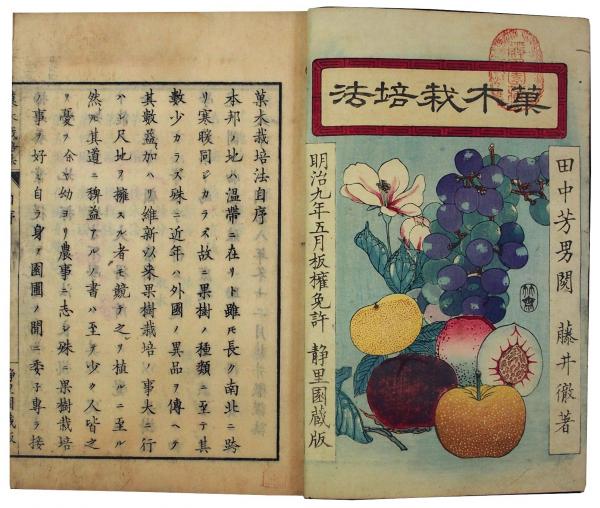 菓木栽培法
田中芳男閲 藤井徹著
明治九年五月板權免許 静里園蔵版
菓木栽培法自序
本邦ノ地ハ温帶ニ在リト雖𪜈長ク南北ニ跨
リ寒暖同ジカラズ故ニ果樹ノ種類ニ至テ其
數少カラズ殊ニ近年ハ外國ノ異品ヲ傳ヘテ
其數益加ハリ維新以来果樹栽培ノ事大ニ行
ハレ尺地ヲ擁スル者モ競テ之ヲ植ルニ至ル
然𪜈其道ニ裨益アルノ書ハ至テ少ク人皆之
ヲ憂フ余幼ヨリ農事ニ志シ殊ニ果樹栽培
ノ事ヲ好ミ自ラ身ヲ園圃ノ間ニ委子專ラ接